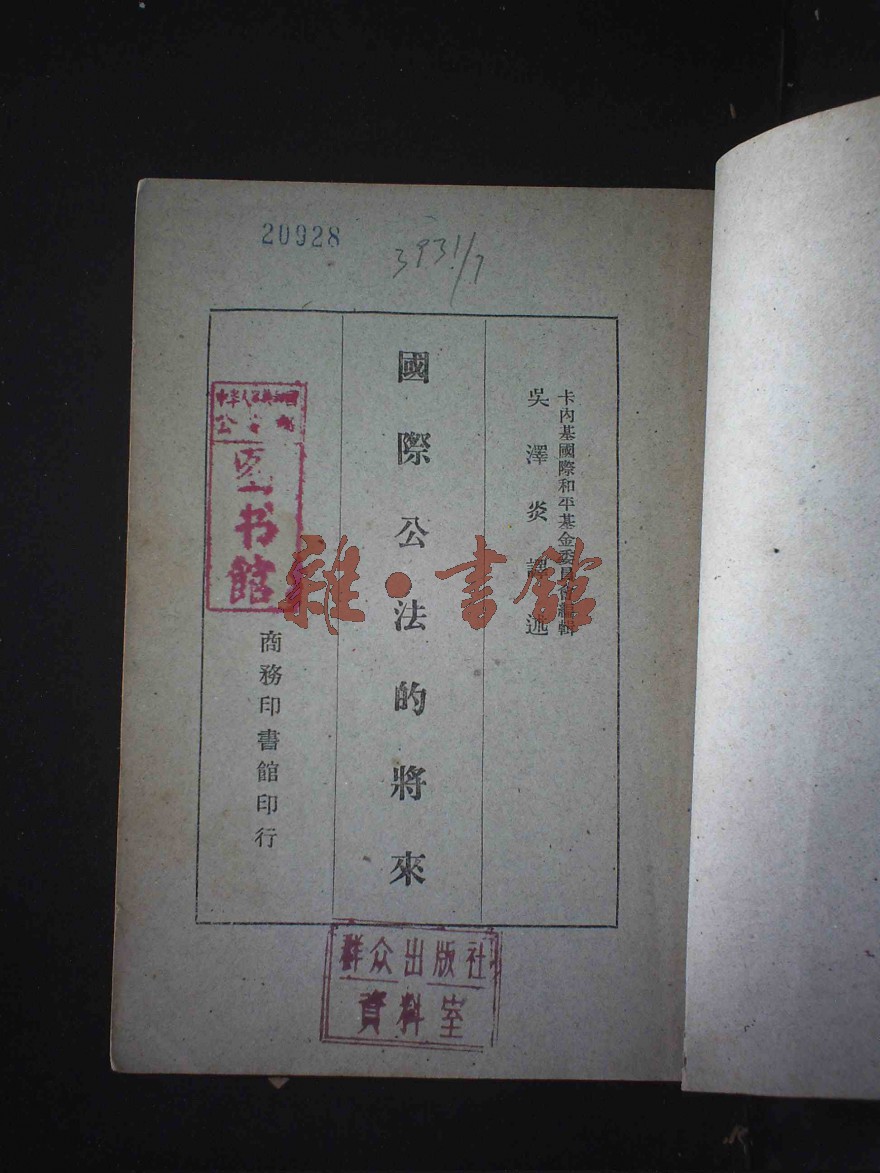 20928
3931/7
卡內基國際和平基金委員會編輯
吳澤炎譯述
國際公法的將來
商務印書館印行
中华人民共和国
公安部
图书馆
雜·書館
群众出版社
資料室